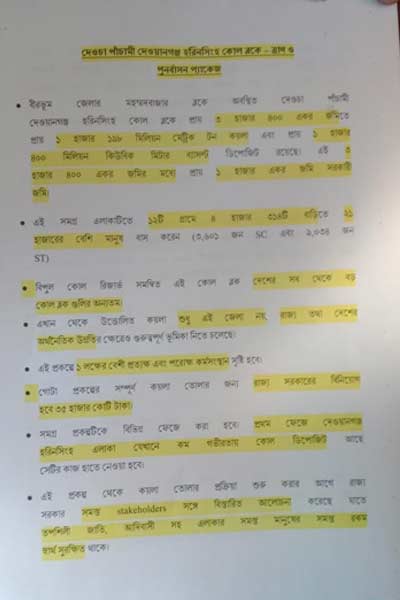 দেওচা পাঁচামী দেওয়ানগঞ্জ হরিনসিংহ কোল ব্লকে – ত্রাণ ও
পুনর্বাসন প্যাকেজ
• বীরভূম জেলার মহম্মদবাজার ব্লকে অবস্থিত দেওচা পাঁচামী
দেওয়ানগঞ্জ হরিনসিংহ কোল ব্লকে প্রায় ৩ হাজার ৪০০ একর জমিতে
প্রায় ১ হাজার ১৯৮ মিলিয়ন মেট্রিক টন কয়লা এবং প্রায় ১ হাজার
৪০০ মিলিয়ন কিউবিক মিটার ব্যাসল্ট ডিপোজিট রয়েছে। এই ৩
হাজার ৪০০ একর জমির মধ্যে প্রায় ১ হাজার একর জমি সরকারী
জমি।
• এই সমগ্র এলাকাটিতে ১২টি গ্রামে ৪ হাজার ৩১৪টি বাড়িতে ২১
হাজারের বেশি মানুষ বাস করেন (৩,৬০১ জন SC এবং ৯,০৩৪ জন
ST)
• বিপুল কোল রিজার্ভ সমন্বিত এই কোল ব্লক দেশের সব থেকে বড়
কোল ব্লক গুলির অন্যতম।
• এখান থেকে উত্তোলিত কয়লা শুধু এই জেলা নয়, রাজ্য তথা দেশের
অর্থনৈতিক উন্নতির ক্ষেত্রেও গুরুত্বপূর্ণ ভূমিকা নিতে চলেছে।
• এই প্রকল্পে ১ লক্ষের বেশী প্রত্যক্ষ এবং পরোক্ষ কর্মসংস্থান সৃষ্টি হবে।
• গোটা প্রকল্পের সম্পূর্ণ কয়লা তোলার জন্য রাজ্য সরকারের বিনিয়োগ
হবে ৩৫ হাজার কোটি টাকা।
• সমগ্র প্রকল্পটিকে বিভিন্ন ফেজে করা হবে। প্রথম ফেজে দেওয়ানগঞ্জ
হরিনসিংহ এলাকা যেখানে কম গভীরতায় কোল ডিপোজিট আছে
সেটির কাজ হাতে নেওয়া হবে।
• এই প্রকল্প থেকে কয়লা তোলার প্রক্রিয়া শুরু করার আগে রাজ্য
সরকার সমস্ত stakeholders সঙ্গে বিস্তারিত আলোচনা করেছে যাতে
তপশিলী জাতি, আদিবাসী সহ এলাকার সমস্ত মানুষের সমস্ত রকম
স্বার্থ সুরক্ষিত থাকে।